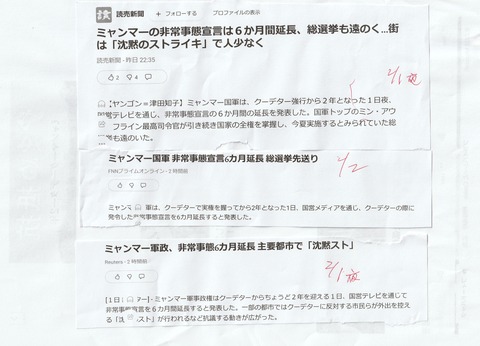 読売新聞
+ フォローする プロフィールの表示
ミャンマーの非常事態宣言は６か月間延長、総選挙も遠のく…街
は「沈黙のストライキ」で人少なく
読売新聞・昨日 22:35
2 4
2/1 夜
【ヤンゴン＝津田知子】ミャンマー国軍は、クーデター強行から２年となった１日夜、
国営テレビを通じ、非常事態宣言の６か月間の延長を発表した。国軍トップのミン・アウ
フライン最高司令官が引き続き国家の全権を掌握し、今夏実施するとみられていた総
も遠のいた。
ミャンマー国軍 非常事態宣言6カ月延長 総選挙先送り
FNNプライムオンライン・3 時間前
2/2
ミャンマ 軍は、クーデターで実権を握ってから2年となった1日、国営メディアを通じ、クーデターの際に
発令した非常事態宣言を6カ月延長すると発表した。
ミャンマー軍政、非常事態6カ月延長 主要都市で「沈黙スト」
Reuters・3 時間前
2/1 夜
［１日 ー］- ミャンマー軍事政権はクーデターからちょうど２年を迎える１日、国営テレビを通じて
非常事態宣言を６カ月間延長すると発表した。一部の都市ではクーデターに反対する市民らが外出を控え
る「沈 スト」が行われるなど抗議する動きが広がった。